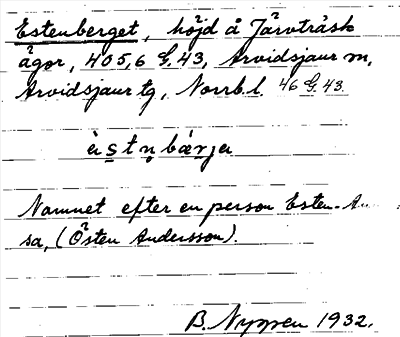 Estenberget, höjd å Järvträsk
ägor, 405,6 G.43, Arvidsjaur sn,
Arvidsjaur tg, Norrb.l. 46 G.43.
Namnet efter en person Esten-
sa, (Östen Andersson).
B. Nyppen 1932.